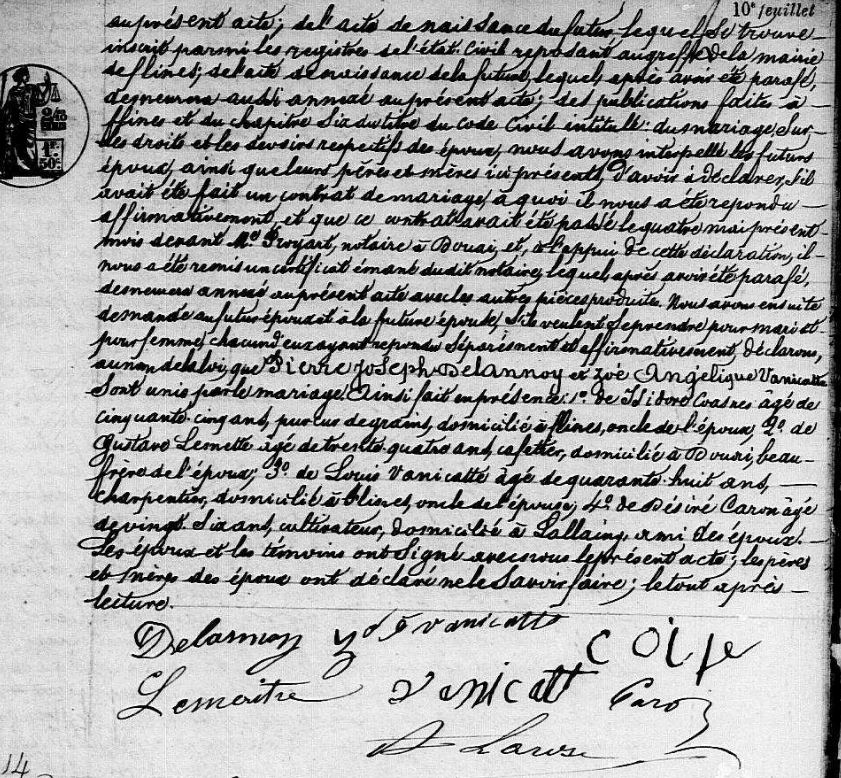 10e feuillet
au présent acte; de l'acte de naissance du futur, lequel se trouve
inscrit parmi les registres de l'état civil reposant au greffe de la mairie
de flines; de l'acte de naissance de la future, lequel, après avoir été parafé,
demeurera aussi annexé au présent acte; des publications faites à
flines et du chapitre six du titre du code Civil intitulé: du mariage, sur
les droits et les devoirs respectifs des époux, nous avons interpellé les futurs
époux, ainsi que leurs pères et mères ici présents, d'avoir à déclarer, s'il
avait été fait un contrat de mariage, à quoi il nous a été répondu
affirmativement, et que ce contrat avait été passé le quatre mai présent
mois devant Me Proyart, notaire à Douai, et, à l'appui de cette déclaration, il
nous a été remis un certificat émané du dit notaire, lequel, après avoir été parafé,
demeurera annexé au présent acte avec les autres pièces produites. Nous avons ensuite
demandé au futur époux et à la future épouse, s'ils veulent se prendre pour mari et
pour femme, chacun d'eux ayant répondu séparément et affirmativement, déclarons,
au nom de la loi, que Pierre Joseph Delannoy et Zoé Angélique Vanicatte
sont unis par le mariage. Ainsi fait en présence: 1o. de Isidore âgé de
cinquante-cinq ans, de grains, domicilié à flines, oncle de l'époux, 2o. de
Gustave âgé de trente-quatre ans, cafetier, domicilié à Douai, beau-
frère de l'époux; 3o. de Louis Vanicatte âgé de quarante-huit ans,
charpentier, domicilié à flines, oncle de l'épouse, 4o. de Désiré Caron âgé
de vingt-six ans, cultivateur, domicilié à Lallaing, ami des époux.
Les époux et les témoins ont signé avec nous le présent acte; les pères
et mères des époux ont déclaré ne le savoir faire; le tout après
lecture.
Delannoy Zoé vanicatte
Lemaitre vanicatt Caron
14